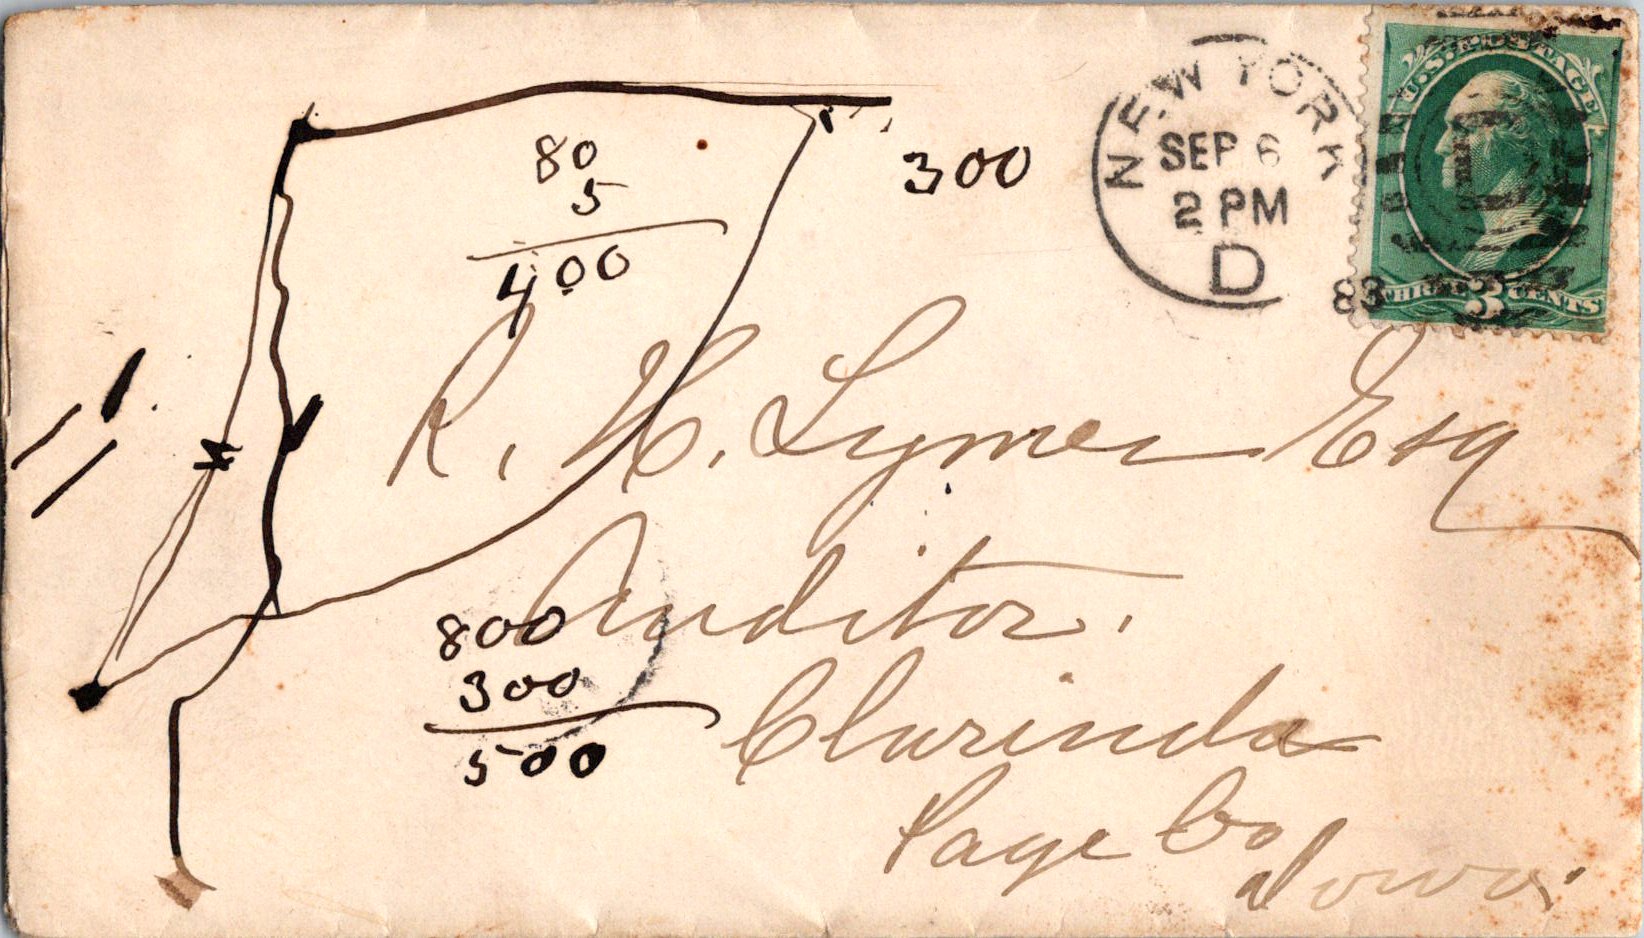 NEW YORK
SEP 6
2 PM
D
83
U.S. POSTAGE
THREE 3 CENTS
80
5
400
300
R. H. Lymer Esq
Auditor.
800
300
500
Clarinda
Page Co
Iowa.